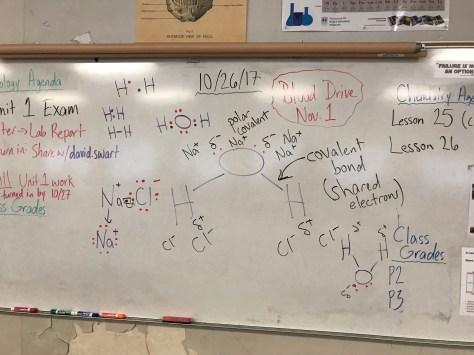 ology Agenda
nit 1 Exam
ter → Lab Report
rn in: Share w/david.swart
ALL Unit 1 work
turned in by 10/27
ss Grades
H · H
H:H
H-H
H:O:H
Na⁺
Cl⁻
Na⁺
10/26/17
Blood Drive
Nov. 1
polar
covalent
Na⁺ δ⁻ Na⁺ δ⁻ Na⁺
Na⁺
covalent
bond
(shared
electrons)
H
H
δ⁺
δ⁺
Cl⁻ Cl⁻
Cl⁻ Cl⁻
δ⁺ δ⁺
H H
O
δ⁻
Chemistry Age
Lesson 25 (c
Lesson 26
Class
Grades
P2
P3
FAILURE IS N
AN OPTION